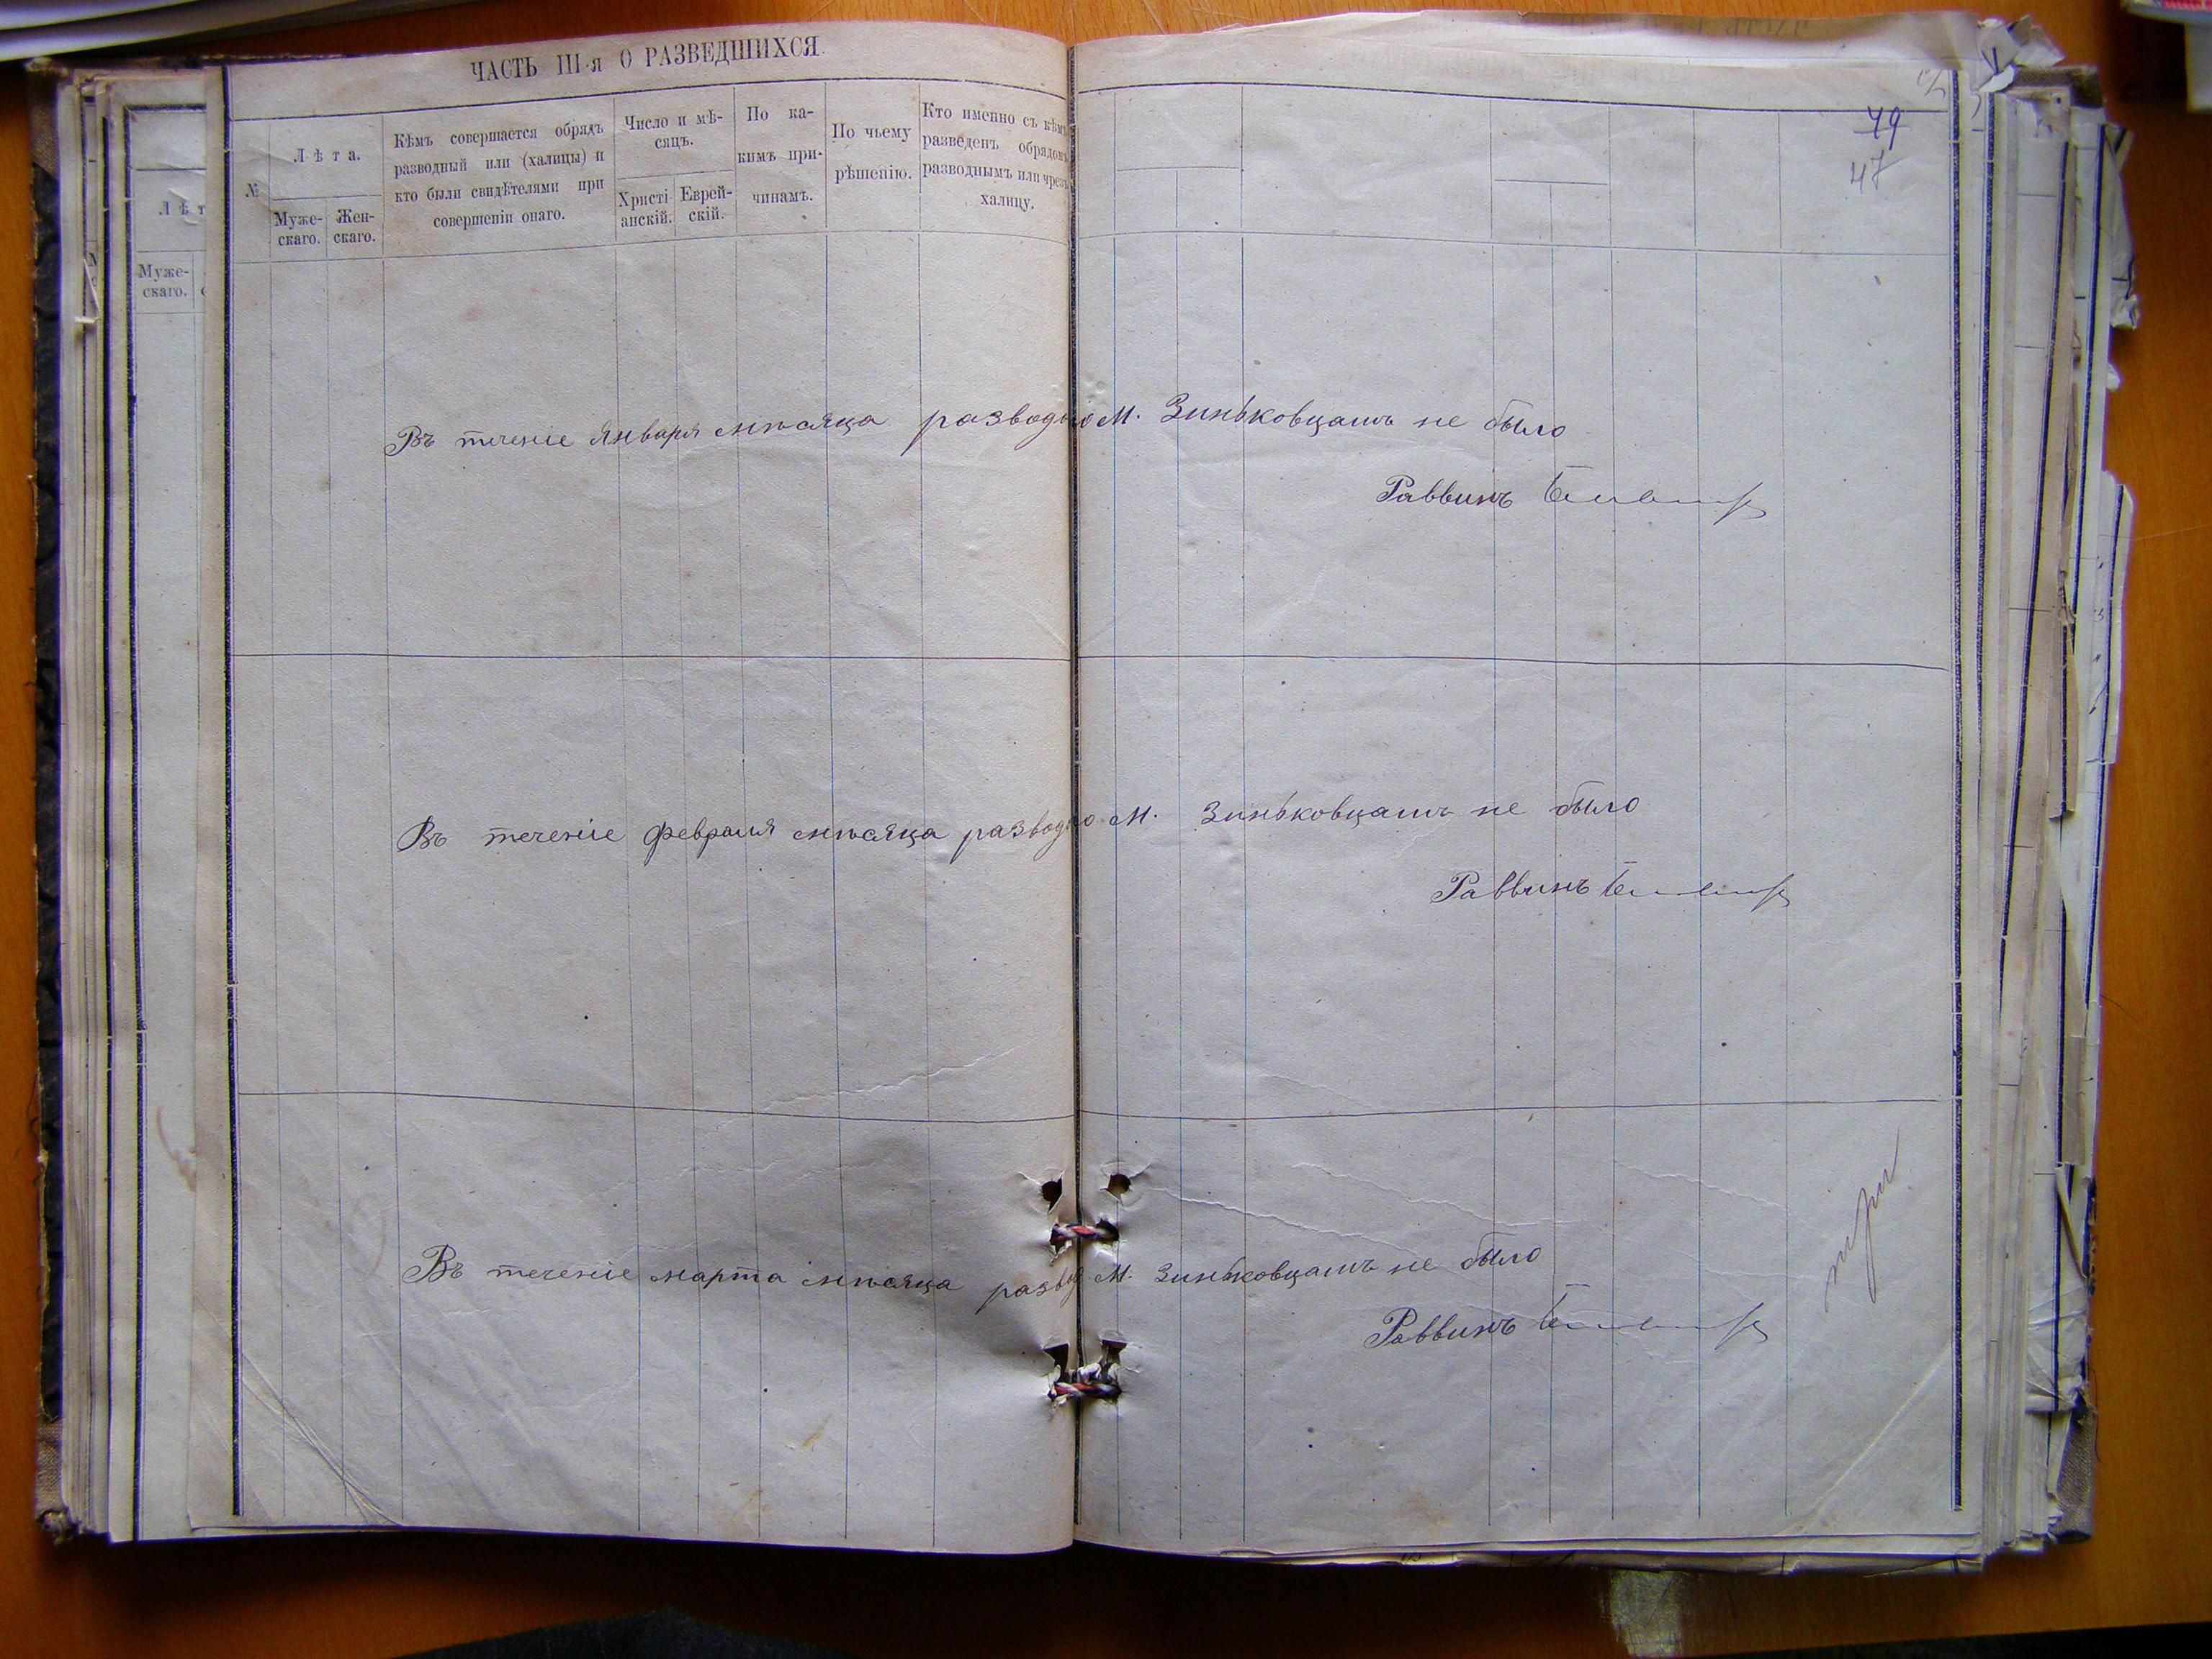 ЧАСТЬ III-я О РАЗВЕДШИХСЯ.
№
Лѣта.
Муже-
скаго.
Жен-
скаго.
Кѣмъ совершается обрядъ
разводный или (халицы) и
кто были свидѣтелями при
совершеніи онаго.
Число и мѣ-
сяцъ.
Христі-
анскій.
Еврей-
скій.
По ка-
кимъ при-
чинамъ.
По чьему
рѣшенію.
Кто именно съ кѣмъ
разведенъ обрядомъ
разводнымъ или чрезъ
халицу.
Лѣт
Муже-
скаго.
49
47
Въ теченіе Января мѣсяца развод по М. Зиньковцамъ не было
Раввинъ
Въ теченіе февраля мѣсяца развод по М. Зиньковцамъ не было
Раввинъ
Въ теченіе марта мѣсяца развод М. Зиньковцамъ не было
Раввинъ
три